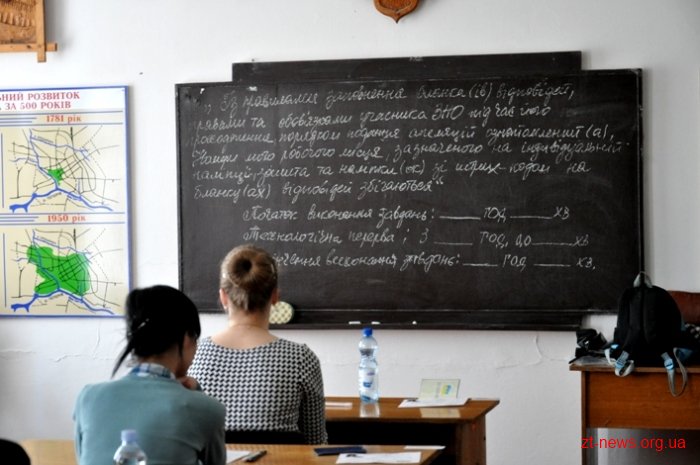 ЬНИЙ РОЗВИТОК
ЗА 500 РОКІВ
1781 рік
1950 рік
„З правилами заповнення бланка(ів) відповідей,
правами та обов'язками учасника ЗНО під час його
проходження, порядком подання апеляцій ознайомлений(а),
мого робочого місця, зазначеного на індивідуальній
зошита та наліпки(ок) зі штрих-кодом на
бланку(ах) відповідей збігаються“
Початок виконання завдань: ____ год ____ хв
Технологічна перерва: з ____ год, до ____ хв
виконання завдань: ____ год ____ хв.
zt-news.org.ua